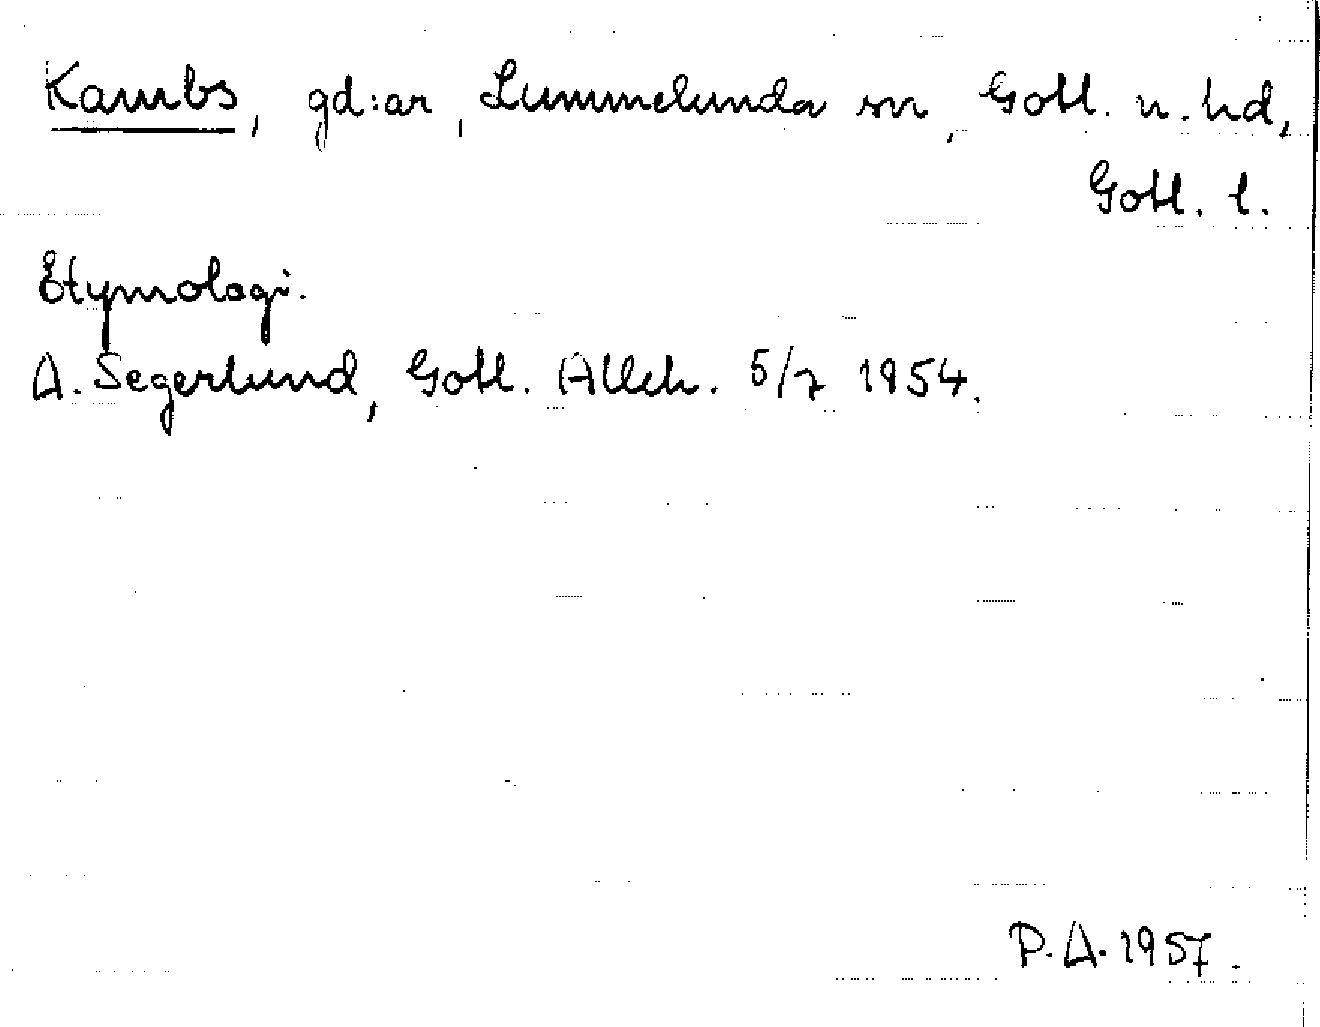 Kambs, gd:ar, Lummelunda sn, Gotl. n. hd,
Gotl. l.
Etymologi.
A. Segerlund, Gotl. Alleh. 5/7 1954.
P. A. 1957.